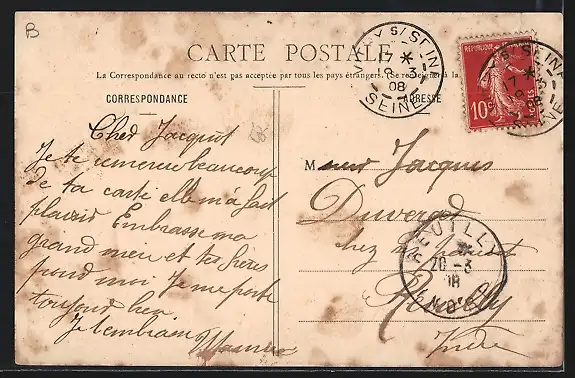 B
CARTE POSTALE
La Correspondance au recto n'est pas acceptée par tous les pays étrangers. (Se renseigner à la
CORRESPONDANCE
ADRESSE
Cher Jacquot
Je te remercie beaucoup
de ta carte elle m'a fait
plaisir Embrasse ma
grand mère et tes frères
pour moi Je me porte
toujours bien
Je t'embrasse
Maurice
M
Jacques
chez
Reuilly
Indre
S/SEINE
17 *
19 -3
08
SEINE
REPUBLIQUE
10c
REUILLY
20 -3
08
INDRE